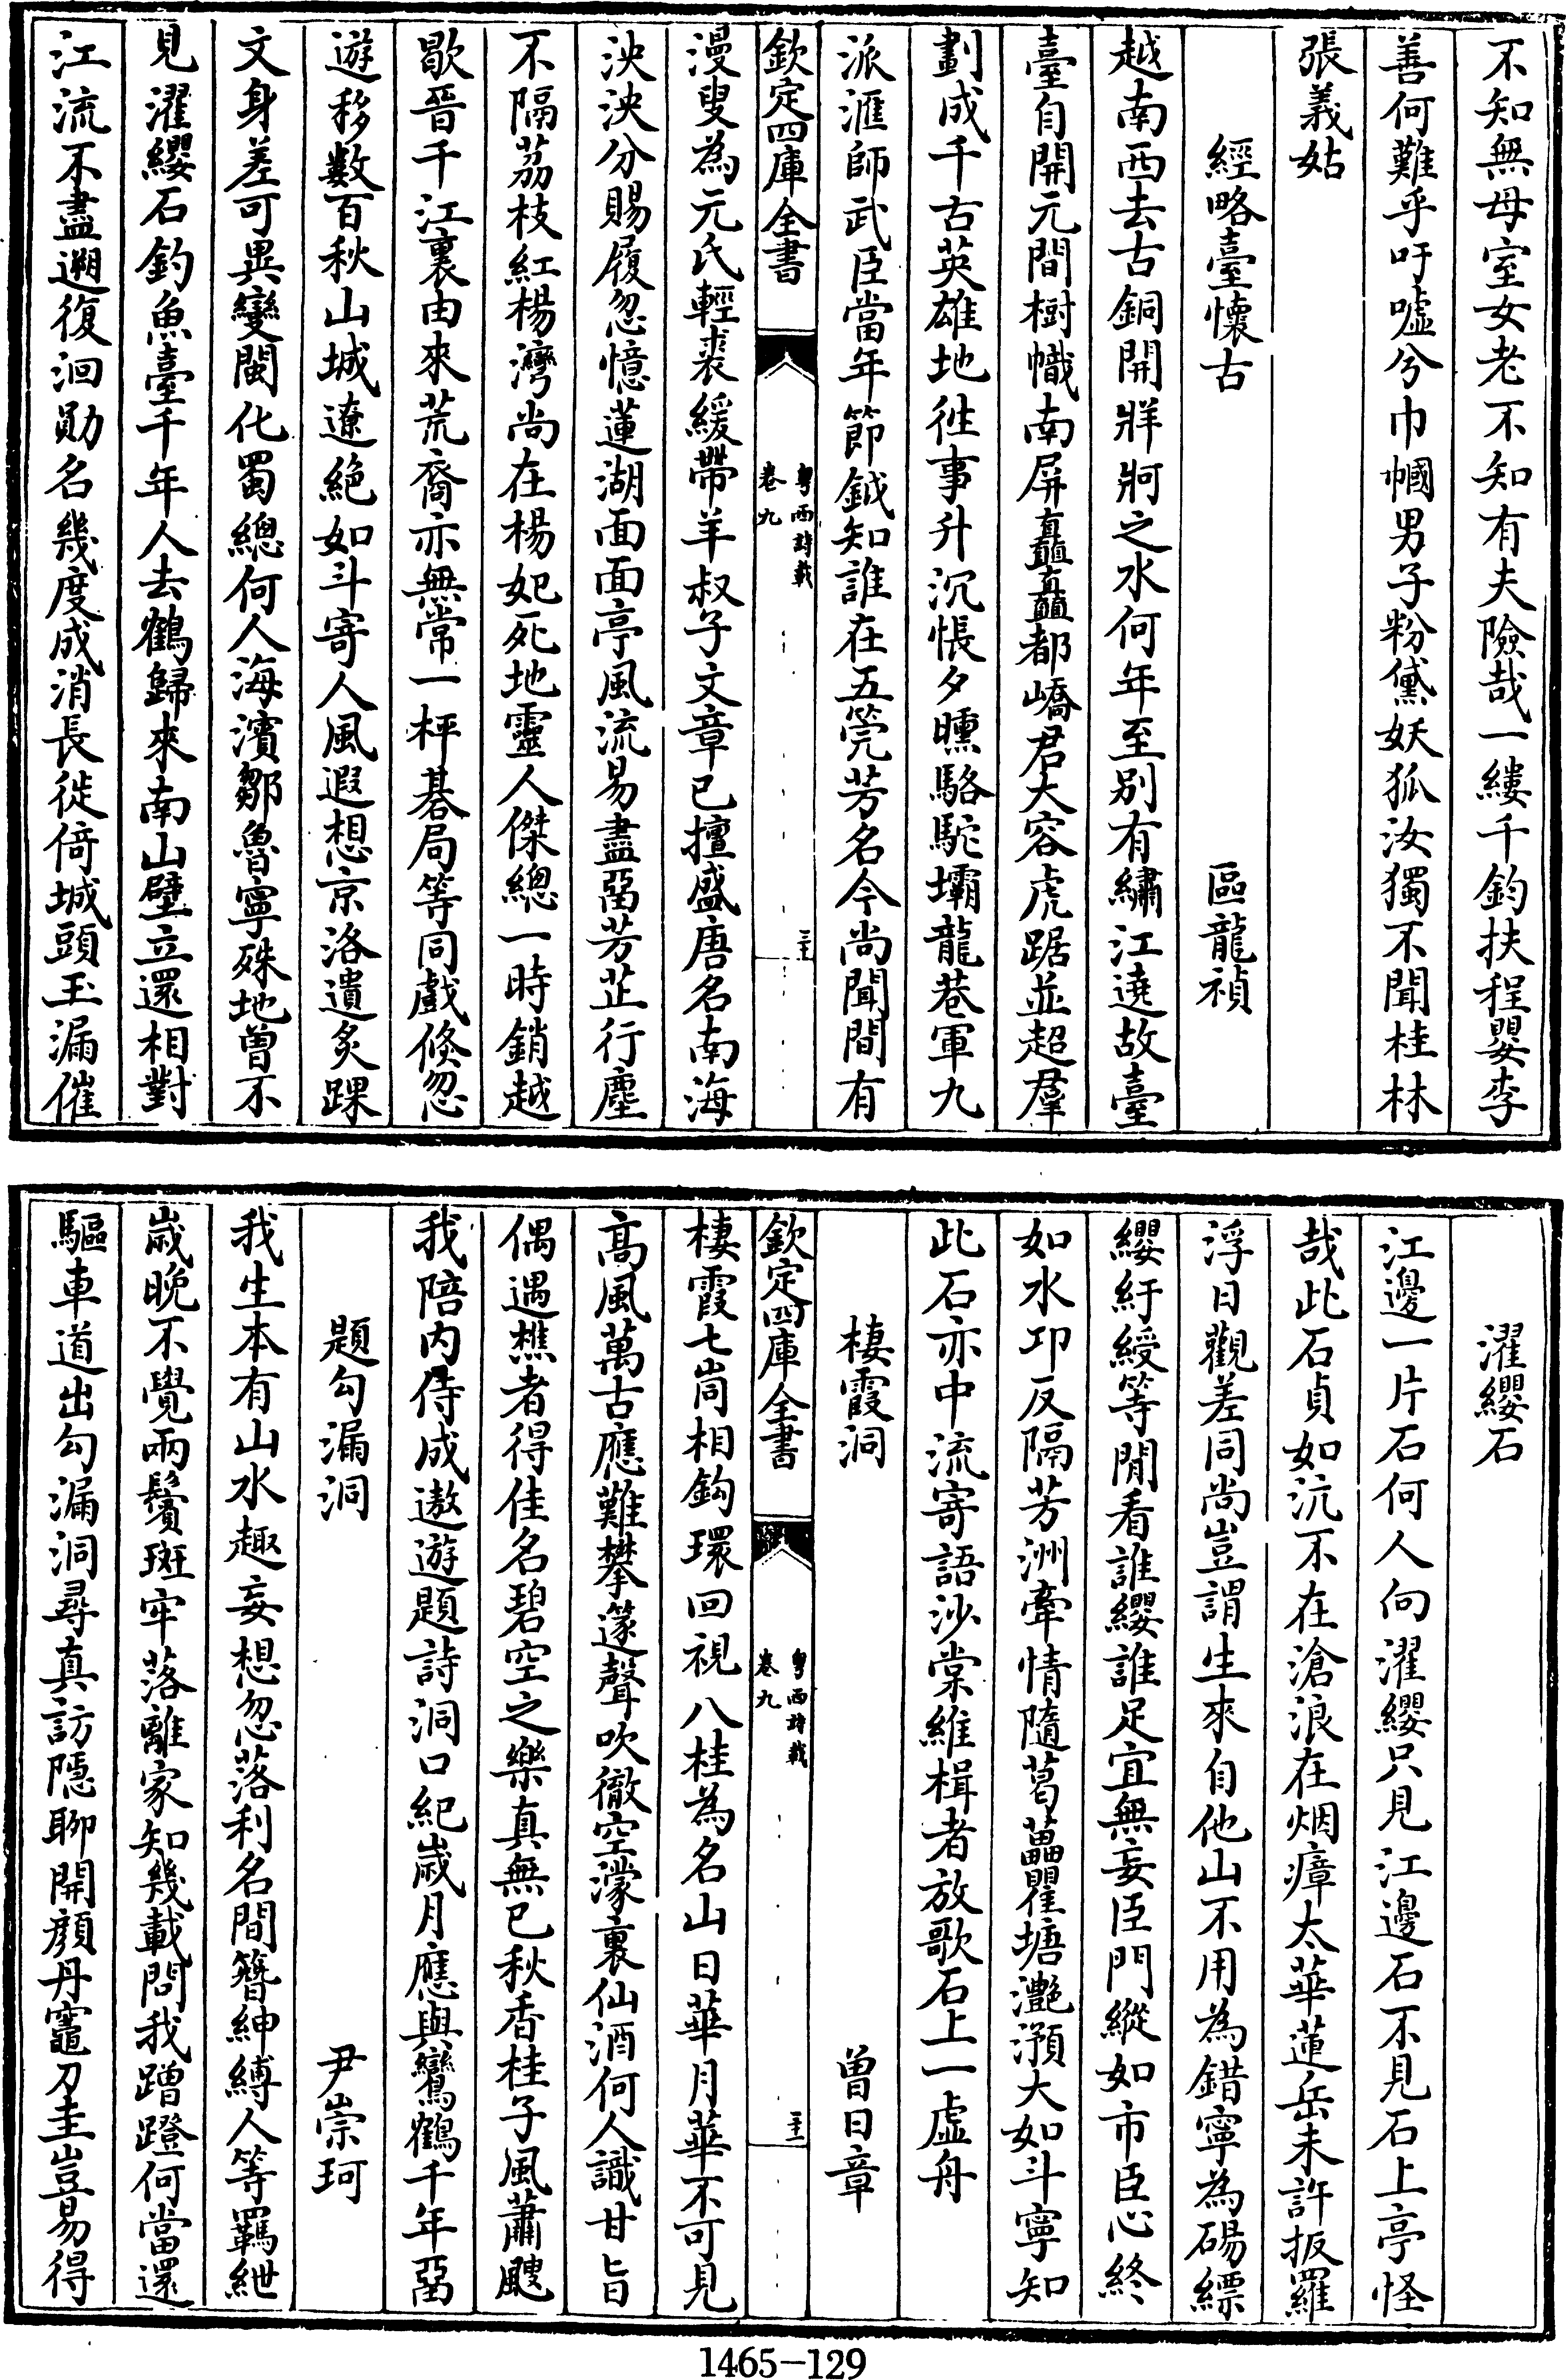 不知無母室女老不知有夫險哉一縷千鈞扶程嬰李
善何難乎吁噓兮巾幗男子粉黛妖狐汝獨不聞桂林
張義姑
經略臺懷古 區龍禎
越南西去古銅開牂牁之水何年至别有繡江遶故臺
臺自開元間樹幟南屏矗矗都嶠君大容虎踞並超羣
劃成千古英雄地徃事升沉悵夕曛駱駝壩龍巷軍九
派滙師武臣當年節鉞知誰在五筦芳名今尚聞間有
欽定四庫全書 粤西詩載 卷九
漫叟為元氏輕裘緩帶羊叔子文章已擅盛唐名南海
泱泱分賜履忽憶蓮湖面面亭風流易盡罶芳芷行塵
不隔荔枝紅楊灣尚在楊妃死地靈人傑總一時銷越
歇晉千江裏由來荒裔亦無常一枰碁局等同戲倐忽
遊移數百秋山城遼絶如斗寄人風遐想京洛遺炙踝
文身差可異變閩化蜀總何人海濱鄒魯寧殊地曽不
見濯纓石釣魚臺千年人去鶴歸來南山壁立還相對
江流不盡遡復洄勛名幾度成消長徙倚城頭玉漏催
濯纓石
江邊一片石何人向濯纓只見江邊石不見石上亭怪
哉此石貞如沆不在滄浪在烟瘴太華蓮岳未許扳羅
浮日觀差同尚豈謂生來自他山不用為錯寧為碭縹
纓紆綬等閒看誰纓誰足宜無妄臣門縱如市臣心終
如水卭反隔芳洲牽情隨葛藟瞿塘灔澦大如斗寧知
此石亦中流寄語沙棠維楫者放歌石上一虚舟
棲霞洞 曽日章
欽定四庫全書 粤西詩載 卷九
棲霞七峝相鈎環回視八桂為名山日華月華不可見
高風萬古應難攀篴聲吹徹空濛裏仙酒何人識甘旨
偶遇樵者得佳名碧空之樂真無已秋香桂子風蕭颼
我陪内侍成遨遊題詩洞口紀歳月應與鸞鶴千年罶
題勾漏洞 尹崇珂
我生本有山水趣妄想忽落利名間簪紳縛人等羈紲
歳晚不覺兩鬢斑牢落離家知幾載問我蹭蹬何當還
驅車道出勾漏洞尋真訪隠聊開顔丹竈刀圭豈易得
1465-129